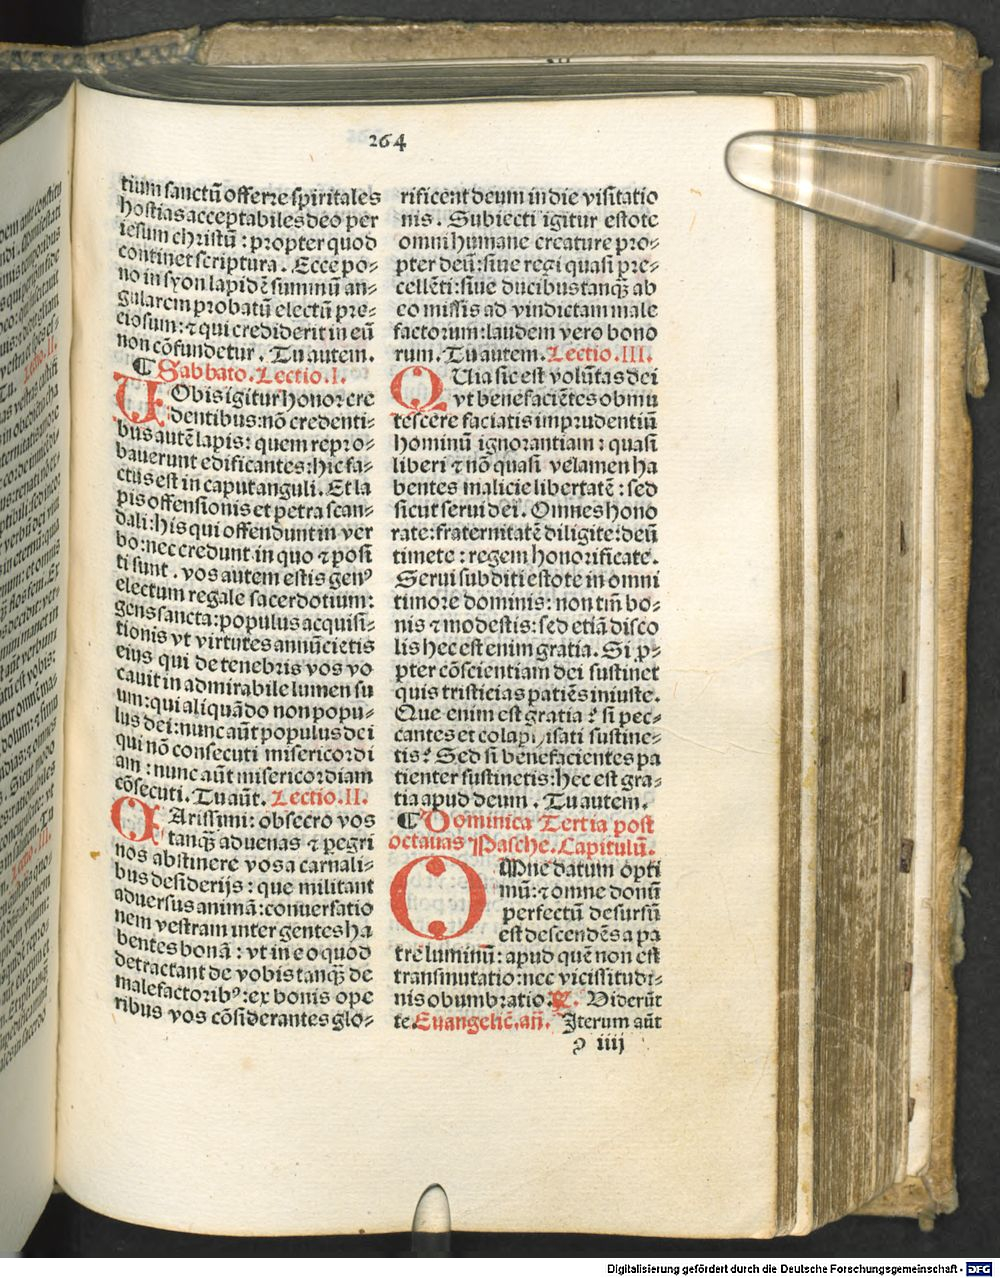 264
tium sanctū offerre spiritales
hostias acceptabiles deo per
iesum christū : propter quod
continet scriptura . Ecce po⸗
no in syon lapidē summū an⸗
gularem probatū electū pre⸗
ciosum : ⁊ qui crediderit in eū
non cōfundetur . Tu autem .
¶ Sabbato . Lectio . I .
VObis igitur honor cre
dentibus : nō credenti⸗
bus autē lapis : quem repro⸗
bauerunt edificantes : hic fa⸗
ctus est in caput anguli . Et la
pis offensionis et petra scan⸗
dali : his qui offendunt in ver
bo : nec credunt in quo ⁊ posi
ti sunt . vos autem estis genꝰ
electum regale sacerdotium :
gens sancta : populus acquisi⸗
tionis vt virtutes annūcietis
eius qui de tenebris vos vo
cauit in admirabile lumen su
um : qui aliquādo non popu⸗
lus dei : nunc aūt populus dei
qui nō consecuti misericordi
am : nunc aūt misericordiam
cōsecuti . Tu aūt . Lectio . II .
CArissimi : obsecro vos
tanq̄ȝ aduenas ⁊ ꝑegri
nos abstinere vos a carnali⸗
bus desiderijs : que militant
aduersus animā : conuersatio
nem vestram inter gentes ha
bentes bonā : vt in eo quod
detractant de vobis tanq̄ȝ de
malefactoribꝰ : ex bonis ope
ribus vos cōsiderantes glo⸗
rificent deum in die visitatio
nis . Subiecti igitur estote
omni humane creature pro⸗
pter deū : siue regi quasi pre⸗
cellēti : siue ducibus tanq̄ȝ ab
eo missis ad vindictam male
factorum : laudem vero bono
rum . Tu autem . Lectio . III .
QUia sic est volūtas dei
vt benefaciētes obmu
tescere faciatis imprudentiū
hominū ignorantiam : quasi
liberi ⁊ nō quasi velamen ha
bentes malicie libertatē : sed
sicut serui dei . Omnes hono
rate : fraternitatē diligite : deū
timete : regem honorificate .
Serui subditi estote in omni
timore dominis : non tm̄ bo⸗
nis ⁊ modestis : sed etiā disco
lis hec est enim gratia . Si ꝓ⸗
pter cōscientiam dei sustinet
quis tristicias patiēs iniuste .
Que enim est gratia ? si pec⸗
cantes et colaphisati sustine⸗
tis ? Sed si benefacientes pa
tienter sustinetis : hec est gra⸗
tia apud deum . Tu autem .
¶ Dominica Tertia post
octauas Pasche . Capitulū .
OMne datum opti
mū : ⁊ omne donū
perfectū desursū
est descendēs a pa
tre luminū : apud quē non est
transmutatio : nec vicissitudi⸗
nis obumbratio . ℟ . Viderūt
te . Euangelic̄ . añ . Iterum aūt
iiij
Digitalisierung gefördert durch die Deutsche Forschungsgemeinschaft - DFG